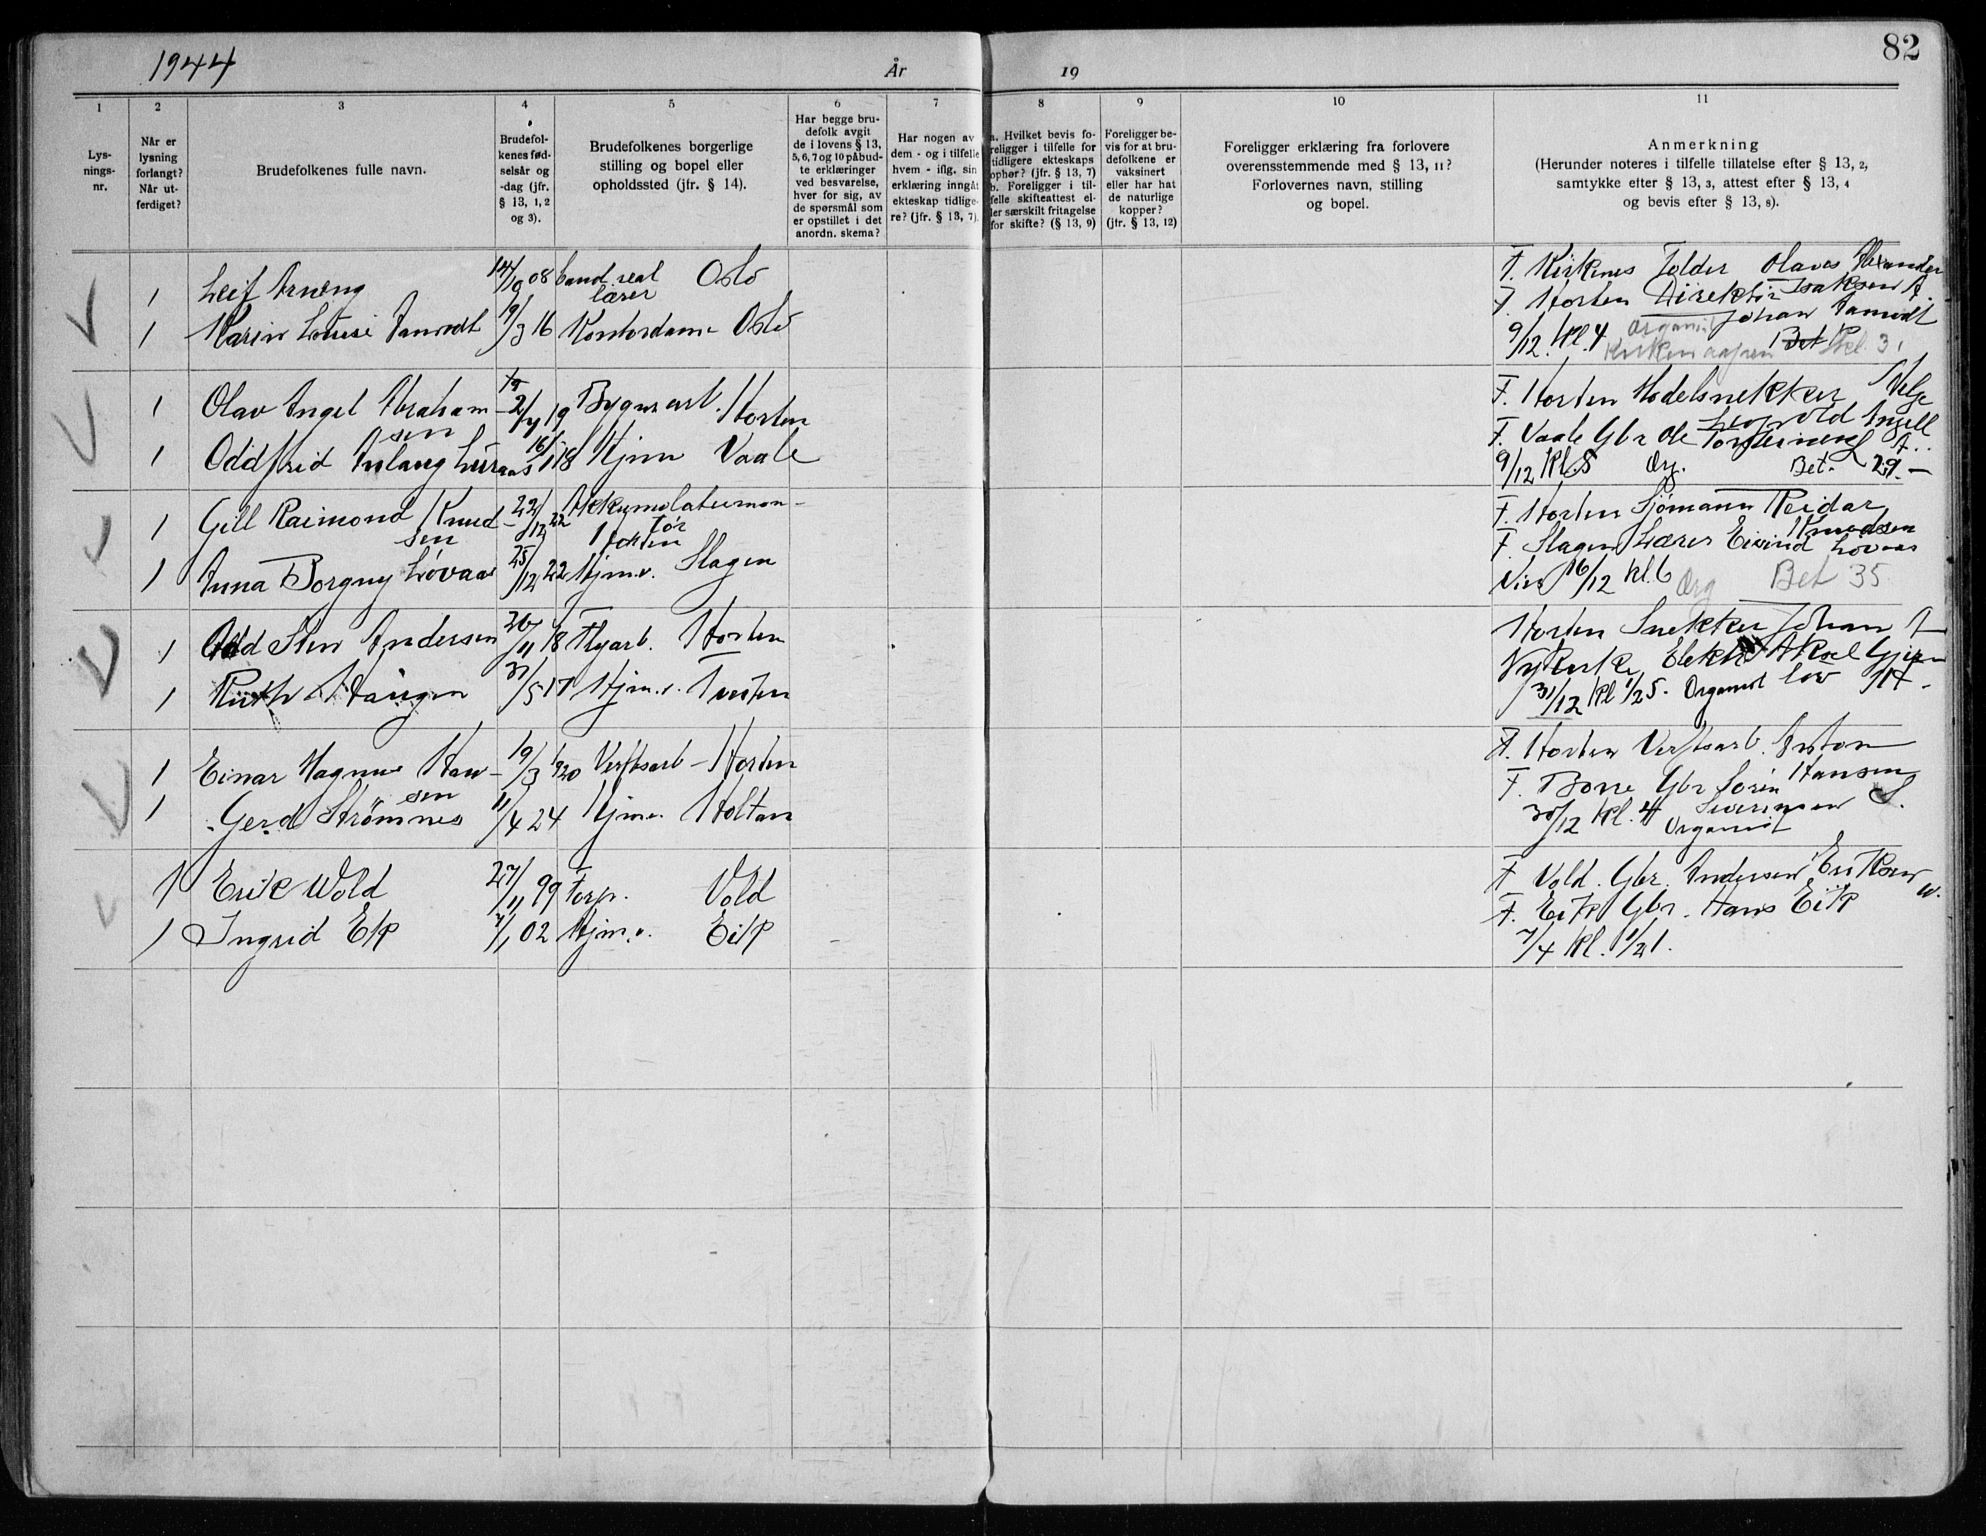 1944
År
19
82
1
2
3
4
5
6
7
8
9
10
11
Lys-
nings-
nr.
Når er
lysning
forlangt?
Når ut-
ferdiget?
Brudefolkenes fulle navn.
Brudefol-
kenes fød-
selsår og
-dag (jfr.
§ 13, 1, 2
og 3).
Brudefolkenes borgerlige
stilling og bopel eller
opholdssted (jfr. § 14).
Har begge bru-
defolk avgit
de i lovens § 13,
5, 6, 7 og 10 påbud-
te erklæringer
ved besvarelse,
hver for sig, av
de spørsmål som
er opstillet i det
anordn. skema?
Har nogen av
dem - og i tilfelle
hvem - iflg. sin
erklæring inngåt
ekteskap tidlige-
re? (jfr. § 13, 7).
a. Hvilket bevis fo-
religger i tilfelle for
tidligere ekteskaps
ophør? (jfr. § 13, 7)
b. Foreligger i til-
felle skifteattest el-
ler særskilt fritagelse
for skifte? (§ 13, 9)
Foreligger be-
vis for at bru-
defolkene er
vaksinert
eller har hat
de naturlige
kopper?
(jfr. § 13, 12)
Foreligger erklæring fra forlovere
overensstemmende med § 13, 11?
Forlovernes navn, stilling
og bopel.
Anmerkning
(Herunder noteres i tilfelle tillatelse efter § 13, 2,
samtykke efter § 13, 3, attest efter § 13, 4
og bevis efter § 13, 8).
1 Leif Arneng 14/9 08 Cand. real Oslo
lærer
1 Karin Louise 19/3 16 Kontordame Oslo
F. Kirkenes Tolder Olaves Alexander
F. Horten Direktør Isaksen A.
Johan
9/12. Kl. 4 Organist Bet Kl. 3
1 Olav Ingel Abraham- 2/4 19 Bygn.arb. Horten
sen
1 Oddfrid Aslaug 16/1 18 Hjm Vaale
F. Horten Modelsnekker Helge
Leopold Ingell
F. Vaale Gbr Ole A.
9/12 Kl. 5 Org. Bet. 29.-
1 Gill Raimond Knud- 22/12 22 Akkumulatormon-
sen tør
Horten
1 Anna Borgny Løvaas 25/12 22 Hjm.v. Slagen
F. Horten Sjømann Reidar
Knudsen
F. Slagen Lærer Eivind Løvaas
16/12 Kl. 6 Org Bet 35
1 Odd Sten Andersen 26/11 18 Flyarb. Horten
1 Ruth Haugen 31/5 17 Hjm.v. Horten
Horten Snekker Johan A
Nykirke Elektr Aksel
31/12 Kl 1/2 5. Organist
1 Einar Magnus Han- 19/3 1920 Verftsarb - Horten
sen
1 Gerd Strømnes 11/4 24 Hjm.v. Holtan
F. Horten Verftsarb. Anton
Hansen
F. Borre Gbr Sørin
Severinsen S.
30/12 Kl. 4 Organist
1 Erik Wold 27/11 99 Forp. Vold
1 Ingrid Eik 7/1 02 Hjm.v. Eik
F. Vold. Gbr. Andersen Eriksen W.
F. Eik Gbr. Hans Eik
7/4 Kl. 1/2 1.